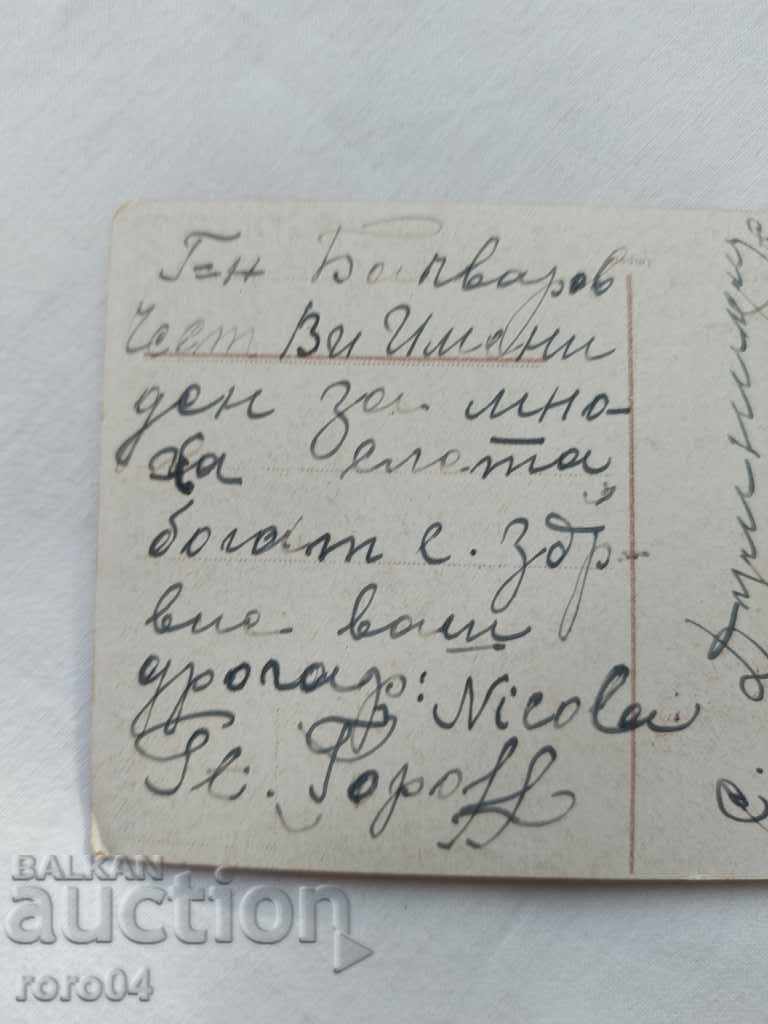 Г-н Бъчваров
Чест Ви Имени
ден за мно-
га елата
богат с. здр-
вие ваш
дрогар: Nicola
St. Popoff
с.
BALKAN
auction
roro04